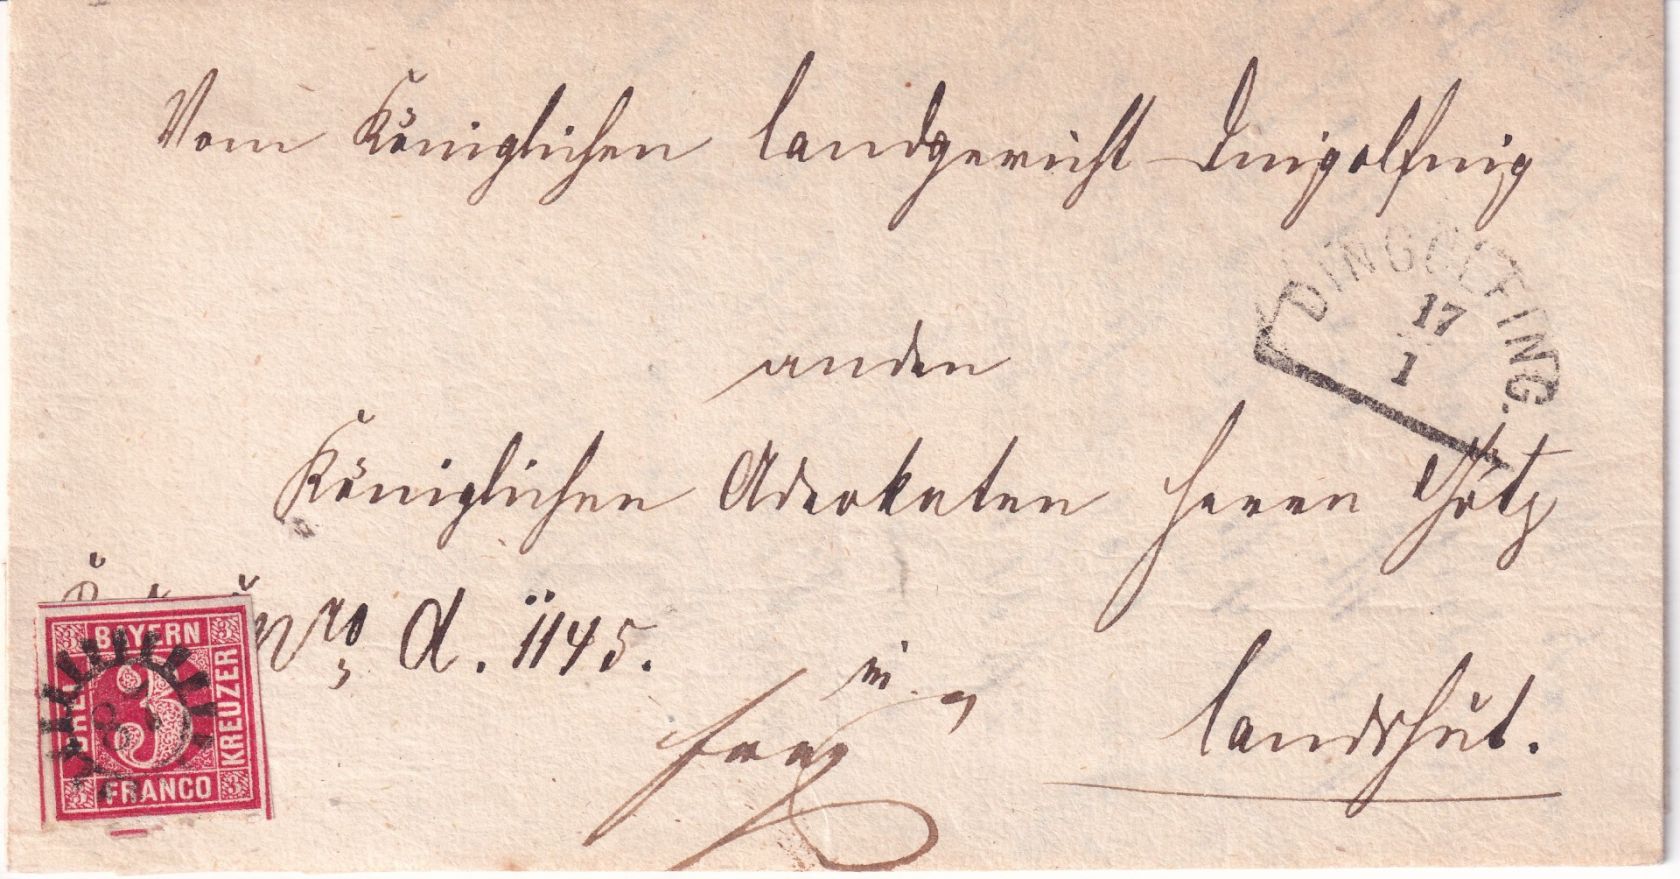 Vom Königlichen Landgericht Dingolfing
DINGOLFING.
17
1
an den
Königlichen Advokaten Herrn Götz
Nro, d. 1145.
in
frey
Landshut.
BAYERN
DREI
3
KREUZER
FRANCO